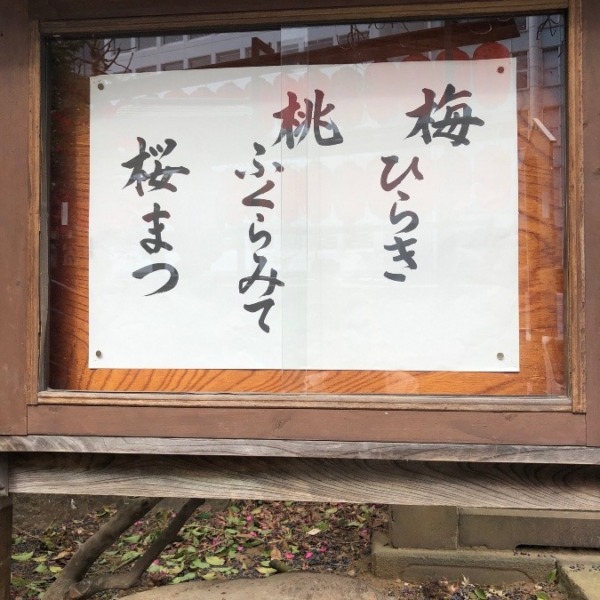 梅ひらき
桃ふくらみて
桜まつ